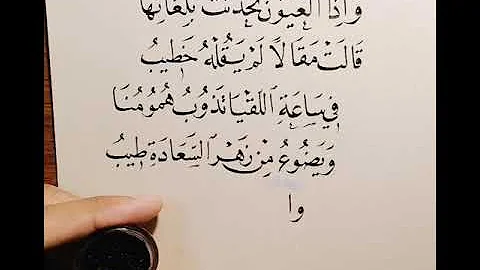 وَإِذَا الْعُيُونُ تَحَدَّثَتْ بِلُغَاتِهَا
قَالَتْ مَقَالًا لَمْ يَقُلْهُ خَطِيبُ
فِي سَاعَةِ اللُّقْيَا تَذُوبُ هُمُومُنَا
وَيَضُوعُ مِنْ زَهْرِ السَّعَادَةِ طِيبُ
وا